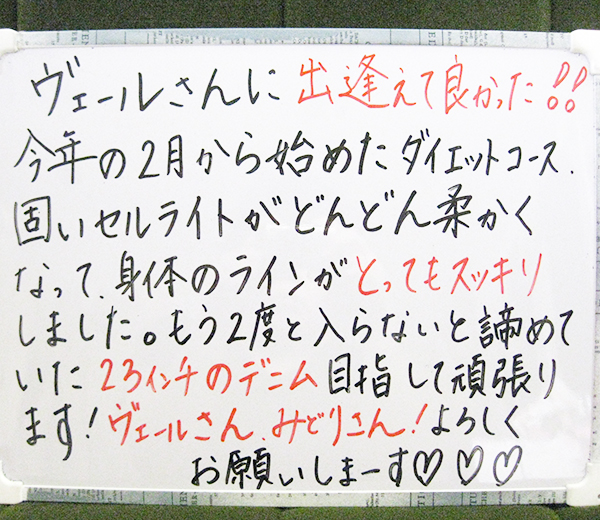 ヴェールさんに出逢えて良かった!!
今年の2月から始めたダイエットコース、
固いセルライトがどんどん柔かく
なって、身体のラインがとってもスッキリ
しました。もう2度と入らないと諦めて
いた23インチのデニム目指して頑張り
ます!ヴェールさん、みどりさん!よろしく
お願いしまーす♡♡♡